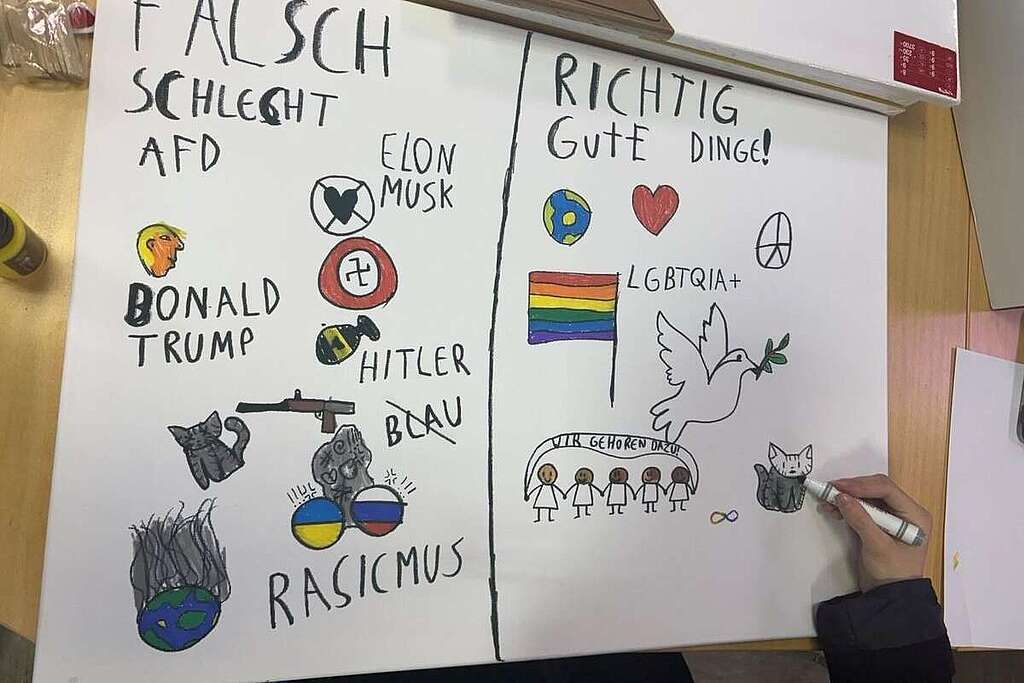 FALSCH
SCHLECHT
AFD
ELON
MUSK
DONALD
TRUMP
HITLER
BLAU
RASICMUS
RICHTIG
GUTE DINGE!
LGBTQIA+
WIR GEHÖREN DAZU!